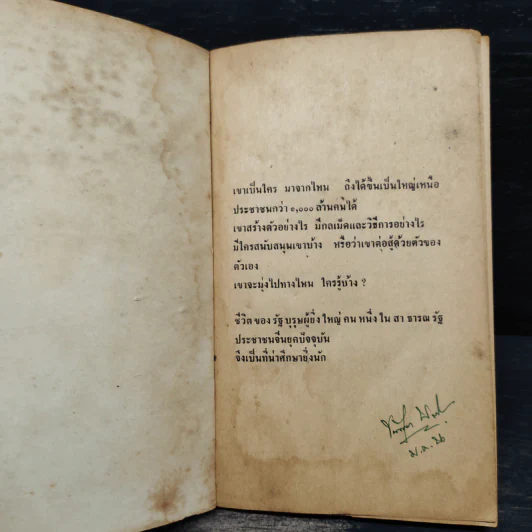 เขาเป็นใคร มาจากไหน ถึงได้ขึ้นเป็นใหญ่เหนือ
ประชาชนกว่า ๑,๐๐๐ ล้านคนได้
เขาสร้างตัวอย่างไร มีกลเม็ดและวิธีการอย่างไร
มีใครสนับสนุนเขาบ้าง หรือว่าเขาต่อสู้ด้วยตัวของ
ตัวเอง
เขาจะมุ่งไปทางไหน ใครรู้บ้าง ?
ชีวิตของรัฐบุรุษผู้ยิ่งใหญ่คนหนึ่งในสาธารณรัฐ
ประชาชนจีนยุคปัจจุบัน
จึงเป็นที่น่าศึกษายิ่งนัก